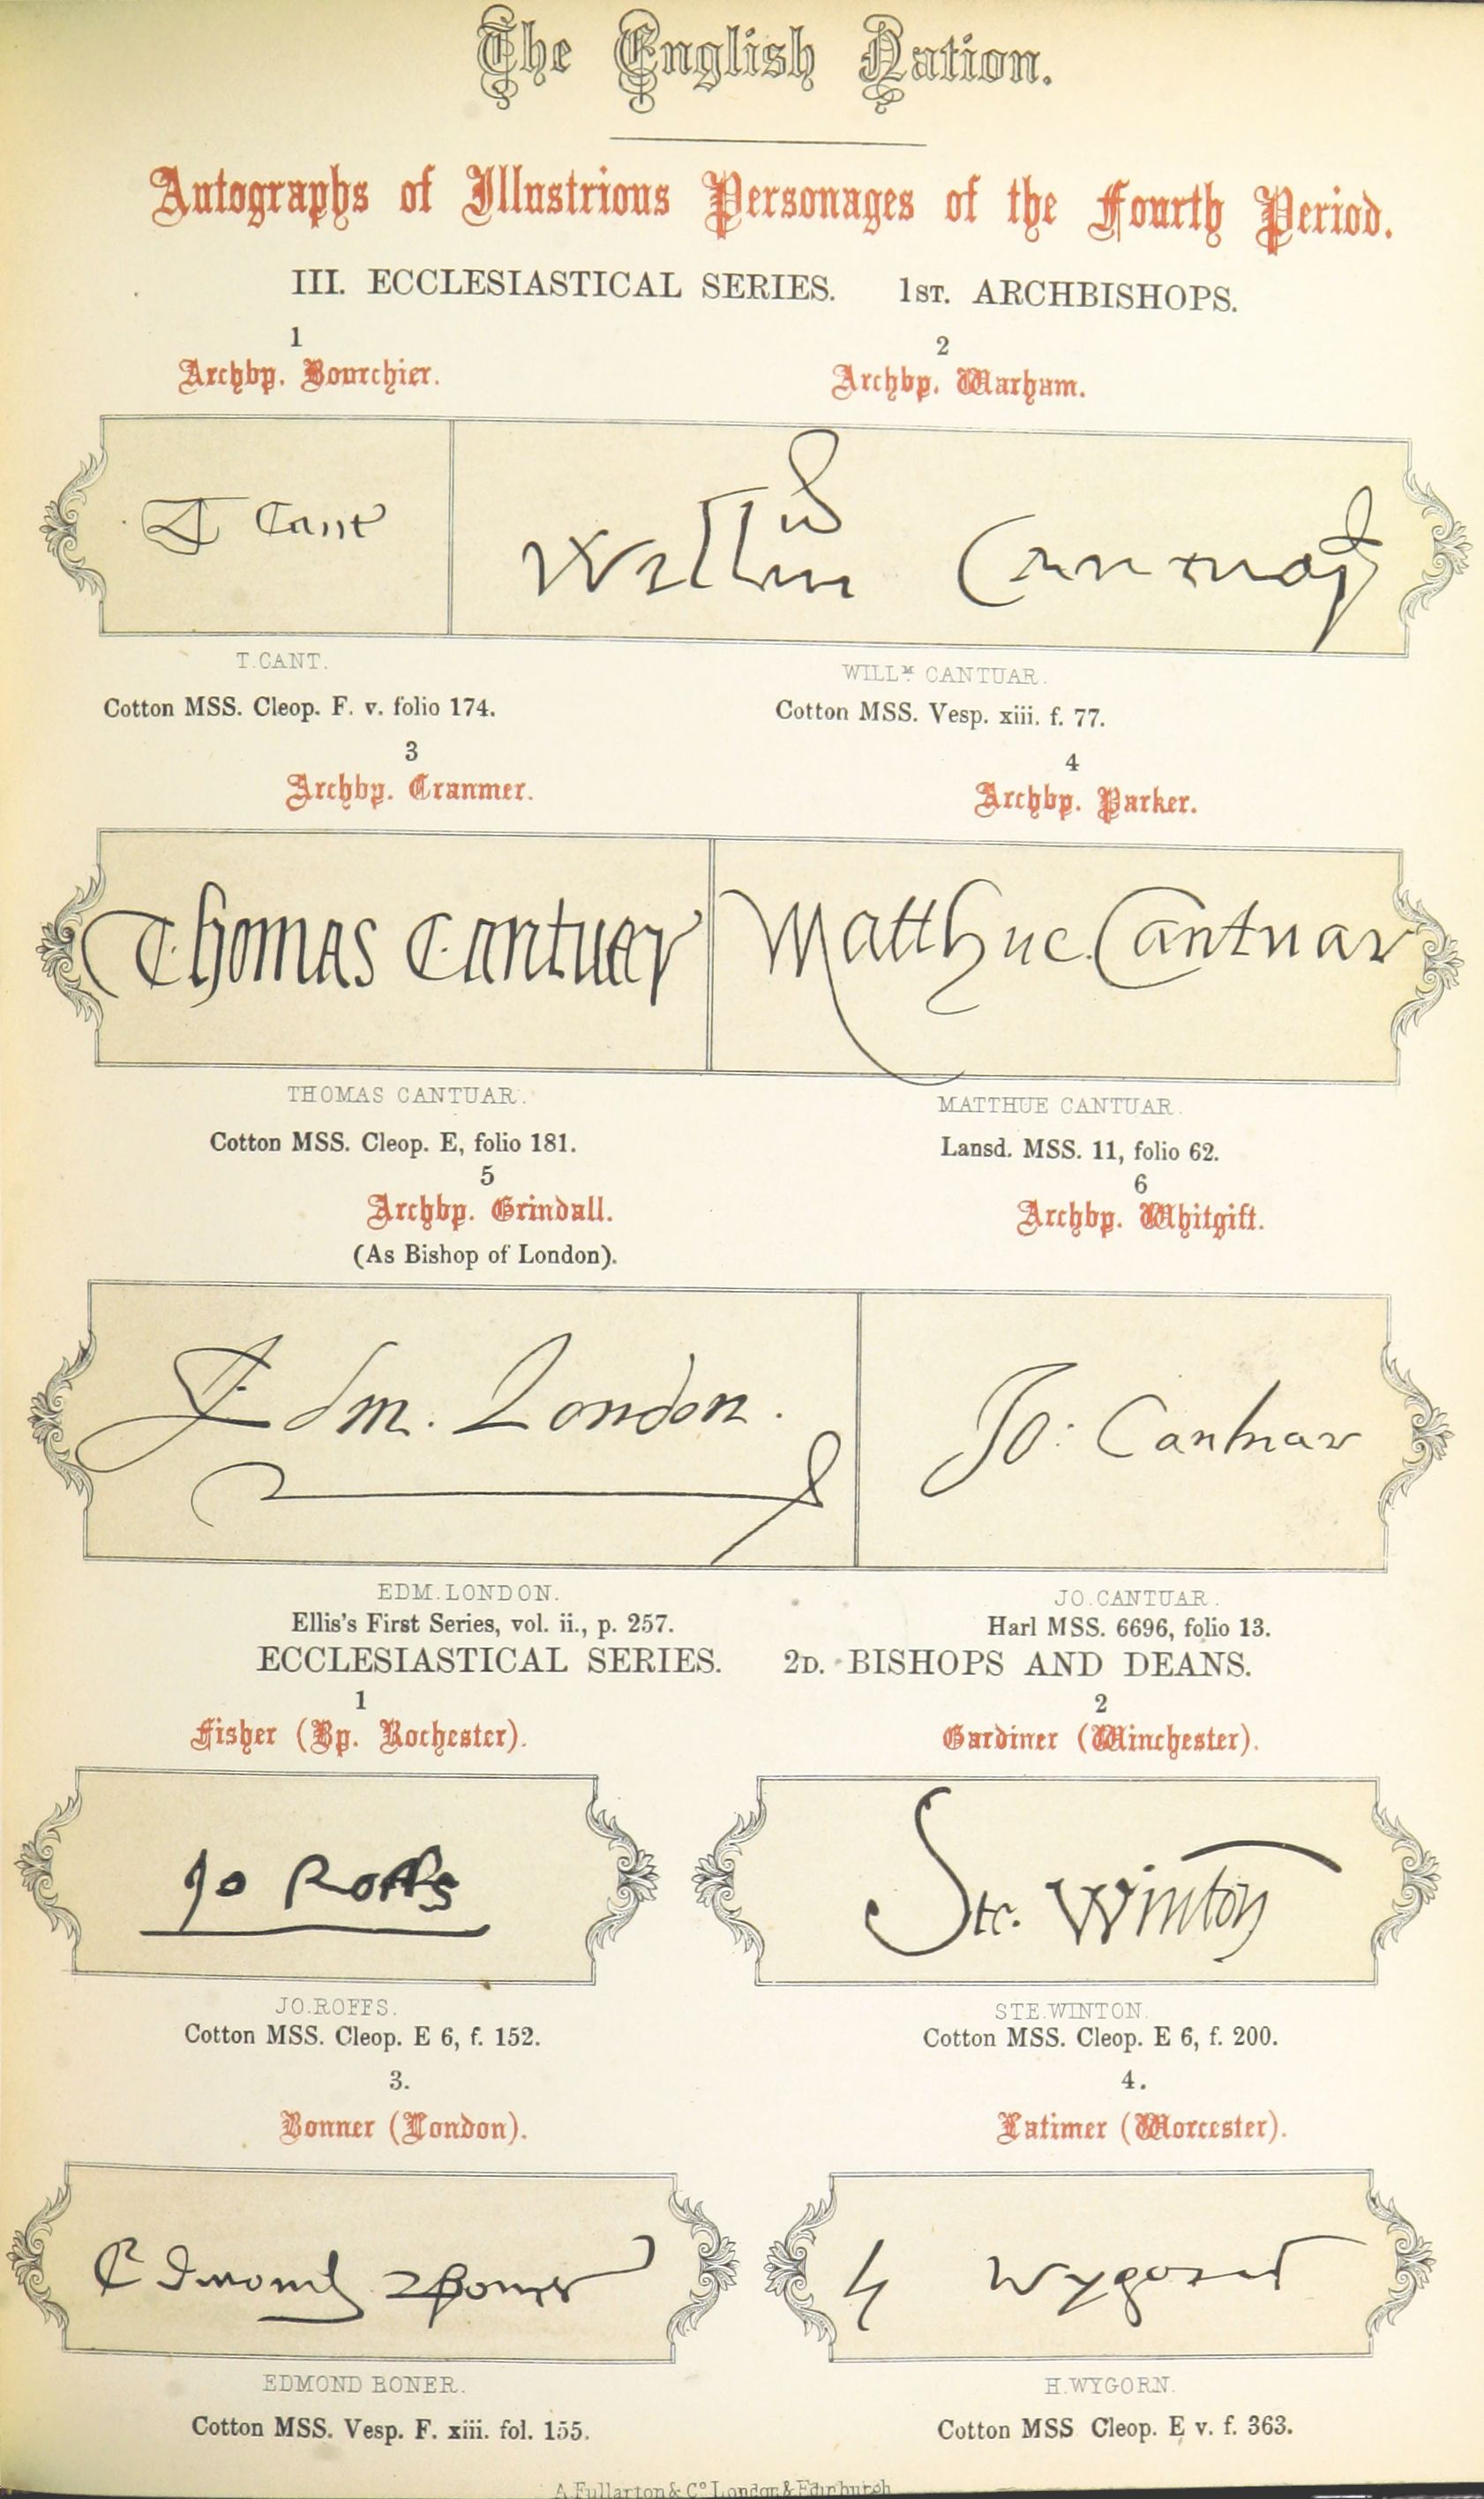 The English Nation.
Autographs of Illustrious Personages of the Fourth Period.
III. ECCLESIASTICAL SERIES. 1ST. ARCHBISHOPS.
1
Archbp. Bourchier.
2
Archbp. Warham.
T Cant
Willm Cantuar
T. CANT.
Cotton MSS. Cleop. F. v. folio 174.
WILLM. CANTUAR.
Cotton MSS. Vesp. xiii. f. 77.
3
Archbp. Cranmer.
4
Archbp. Parker.
Thomas Cantuar
Matthue Cantuar
THOMAS CANTUAR.
Cotton MSS. Cleop. E, folio 181.
MATTHUE CANTUAR.
Lansd. MSS. 11, folio 62.
5
Archbp. Grindall.
(As Bishop of London).
6
Archbp. Whitgift.
Edm. London.
Jo: Cantuar
EDM. LONDON.
Ellis's First Series, vol. ii., p. 257.
JO. CANTUAR.
Harl MSS. 6696, folio 13.
ECCLESIASTICAL SERIES. 2D. BISHOPS AND DEANS.
1
Fisher (Bp. Rochester).
2
Gardiner (Winchester).
Jo Roffs
Ste. Winton
JO. ROFFS.
Cotton MSS. Cleop. E 6, f. 152.
STE. WINTON.
Cotton MSS. Cleop. E 6, f. 200.
3.
Bonner (London).
4.
Latimer (Worcester).
Edmond Boner
H Wygorn
EDMOND BONER.
Cotton MSS. Vesp. F. xiii. fol. 155.
H. WYGORN.
Cotton MSS Cleop. E v. f. 363.
A. Fullarton & Co. London & Edinburgh